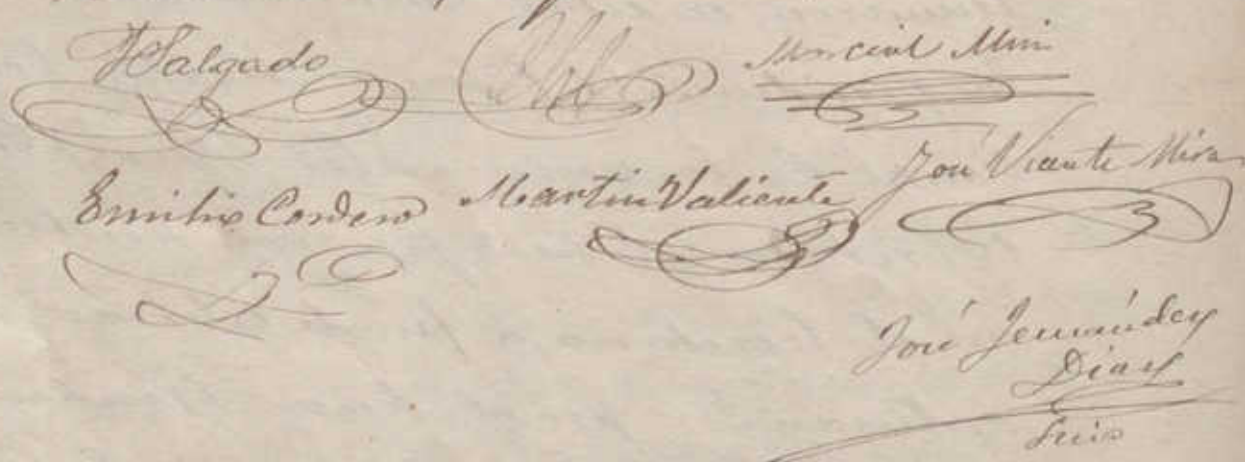 JSalgado
Marcial Mira
Emilio Cordero Martin Valiente José Vicente Mira
José Fernández
Diaz
Srio